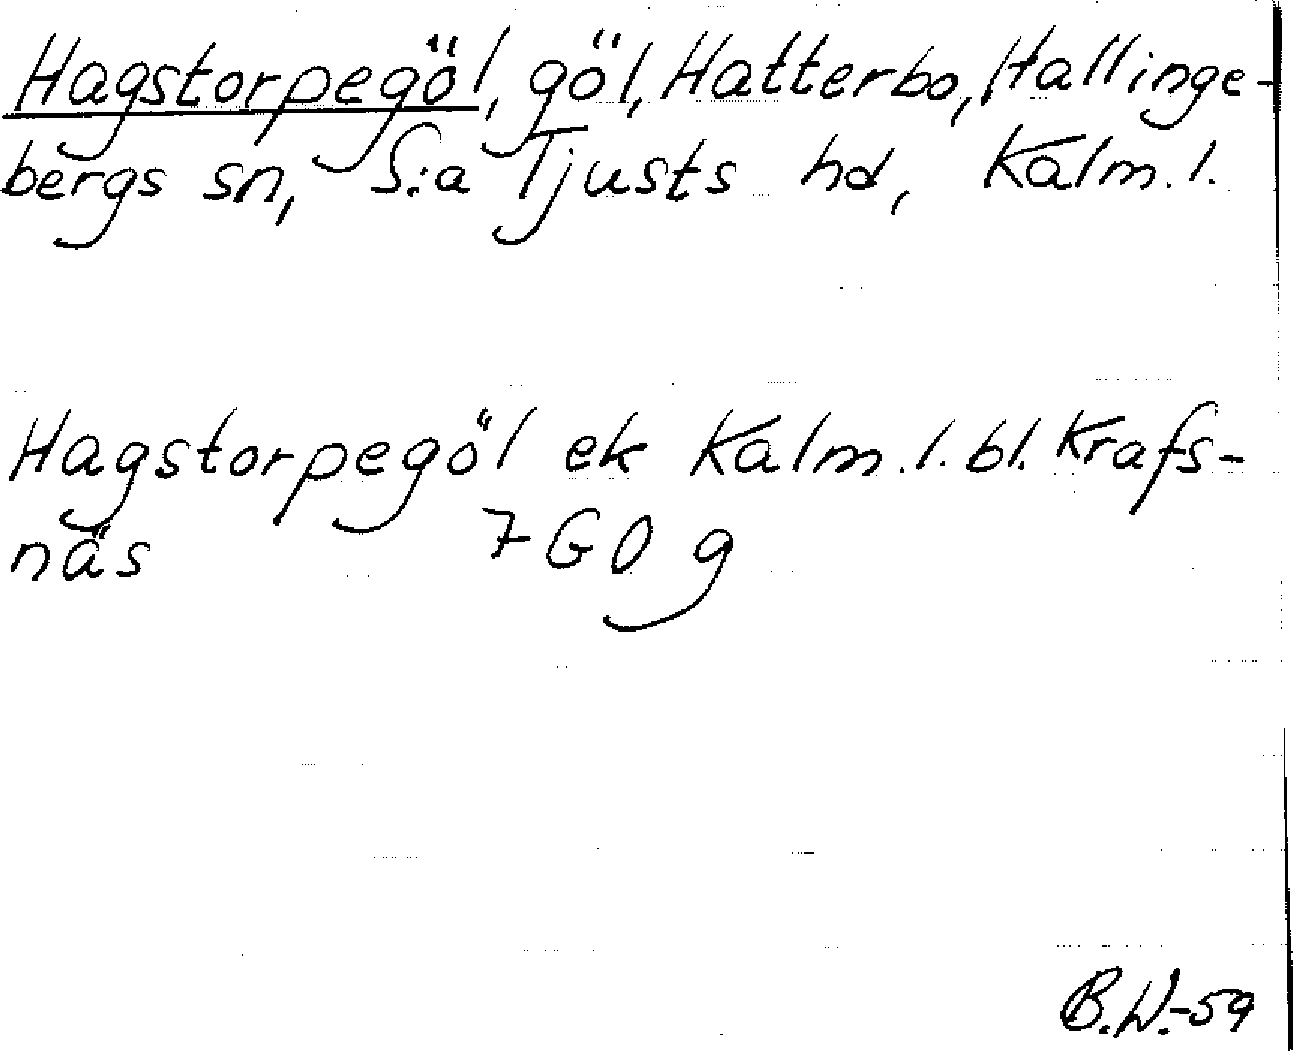 Hagstorpegöl, göl, Hatterbo, Hallinge-
bergs sn, S:a Tjusts hd, Kalm. l.
Hagstorpegöl ek Kalm. l. bl. Krafs-
näs 7GO g
B.W.-59